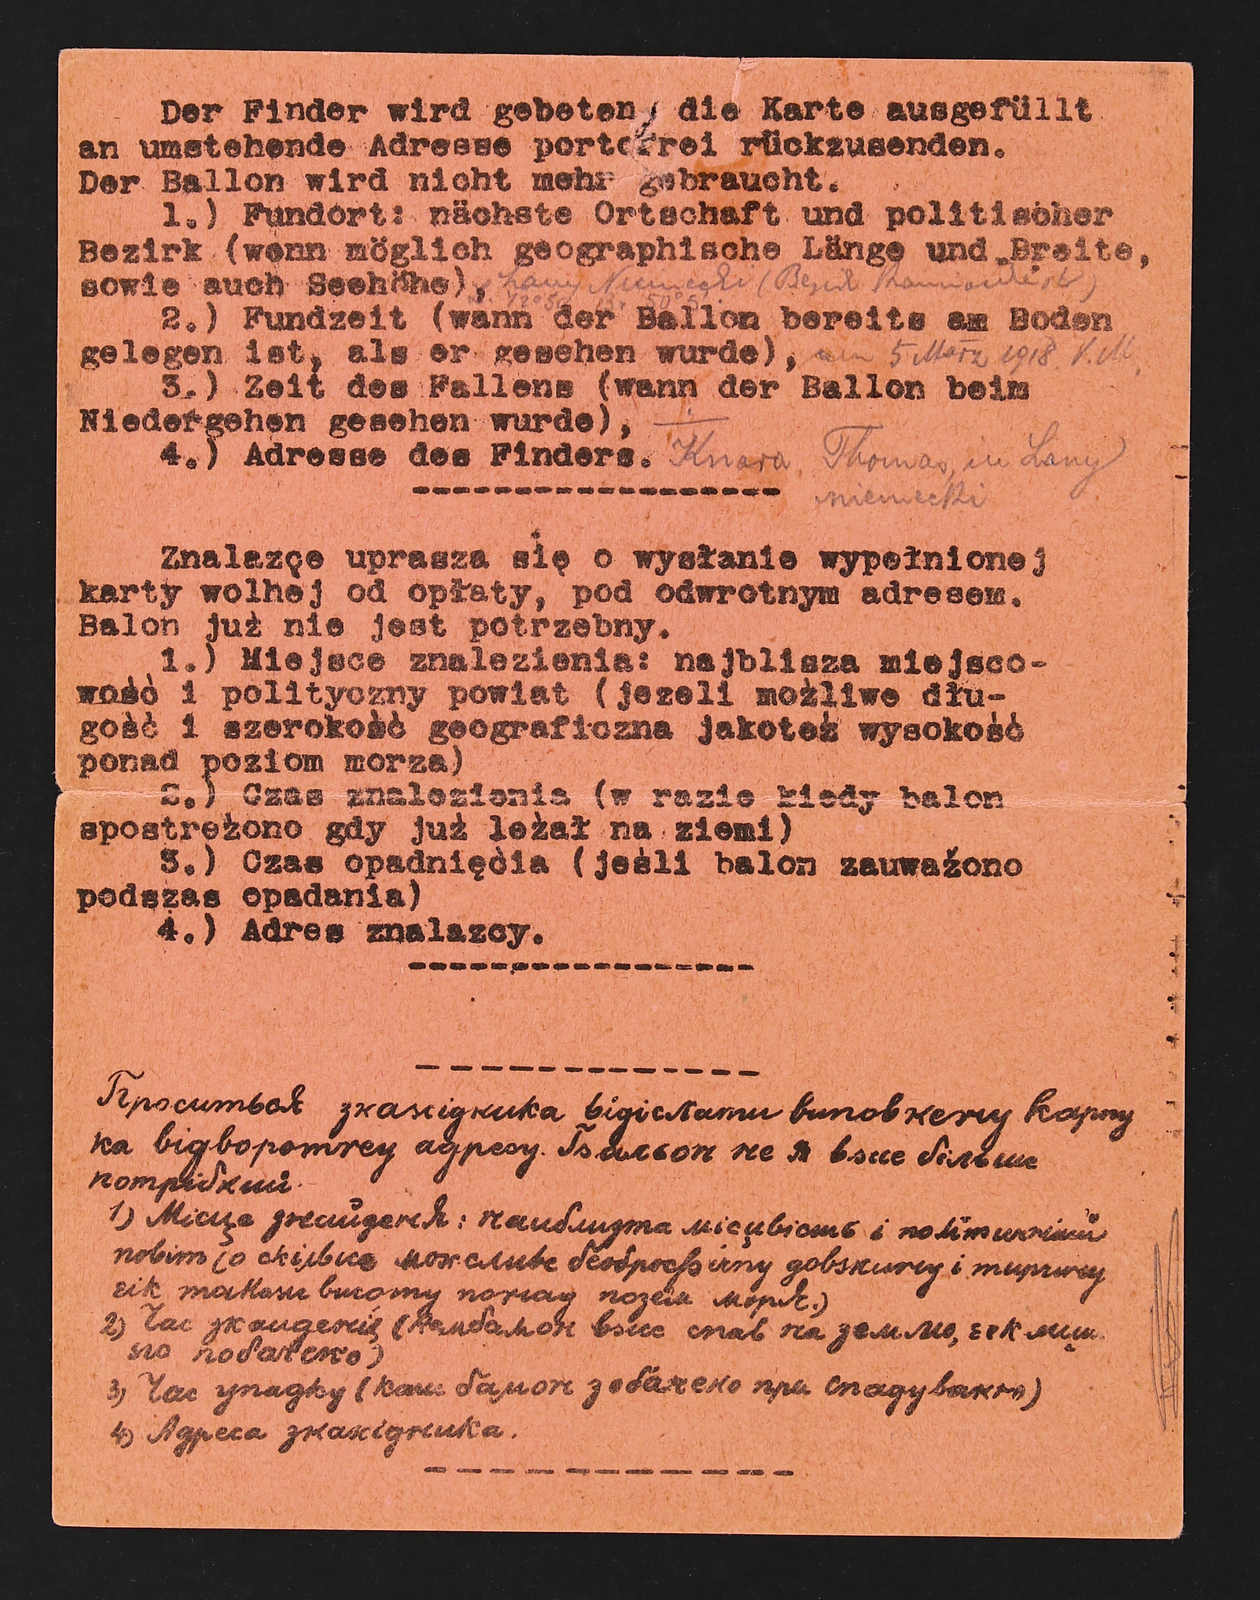 Der Finder wird gebeten, die Karte ausgefüllt
an umstehende Adresse portofrei rückzusenden.
Der Ballon wird nicht mehr gebraucht.
1.) Fundort: nächste Ortschaft und politischer
Bezirk (wenn möglich geographische Länge und Breite,
sowie auch Seehöhe), Łany Niemiecki (Bezirk
2.) Fundzeit (wann der Ballon bereits am Boden
gelegen ist, als er gesehen wurde), am 5 März 1918 V.M.
3.) Zeit des Fallens (wann der Ballon beim
Niedergehen gesehen wurde), —
4.) Adresse des Finders. Knara Thomas, in Lany
niemecki
Znalazçe uprasza się o wysłanie wypełnionej
karty wolhej od opłaty, pod odwrotnym adresem.
Balon już nie jest potrzebny.
1.) Miejsce znalezienia: najblisza miejsco-
wość i polityczny powiat (jezeli możliwe dłu-
gość i szerokość geograficzna jakoteż wysokość
ponad poziom morza)
2.) Czas znalezienia (w razie kiedy balon
spostreżono gdy już leżał na ziemi)
3.) Czas opadnięcia (jeśli balon zauważono
podszas opadania)
4.) Adres znalazcy.
Проситься знахідника відіслати виповнену карту
на відворотнеу адресу. Бальон не я вже більше
потрібний.
1) Місце знайденя: наиблизта місцвість і політичний
повіт (о скілько можливе
також висоту понад позем моря.)
2) Час (кем балон вже спав на землю,
его побачено)
3) Час упадку (каш балон зобачено при спадуваню)
4) Адреса знахідника.